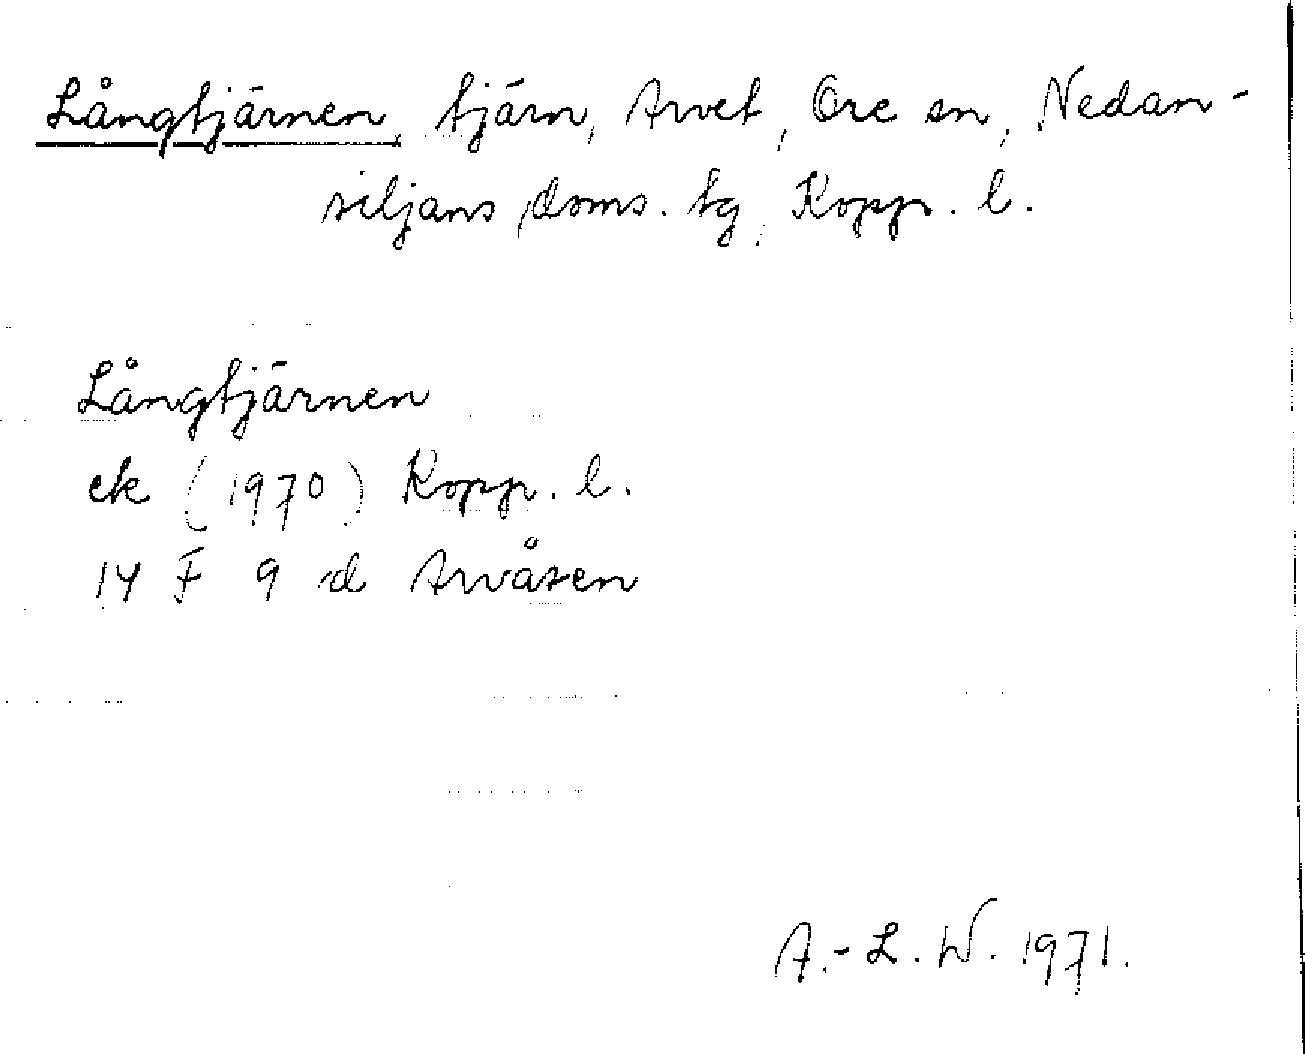 Långtjärnen, tjärn, Arvet, Ore sn, Nedan-
siljans doms. tg, Kopp. l.
Långtjärnen
ek (1970) Kopp. l.
14 F 9 d Arvåsen
A.-L. W. 1971.